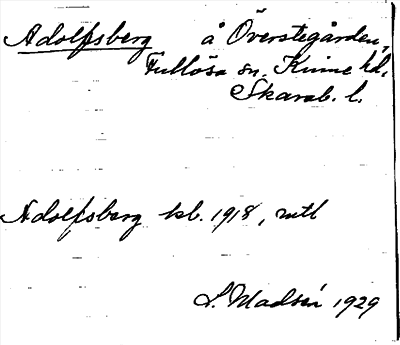 Adolfsberg å Överstegården,
Fullösa sn. Kinne hd.
Skarab. l.
Adolfsberg kb. 1918, mtl
L. Madsén 1929